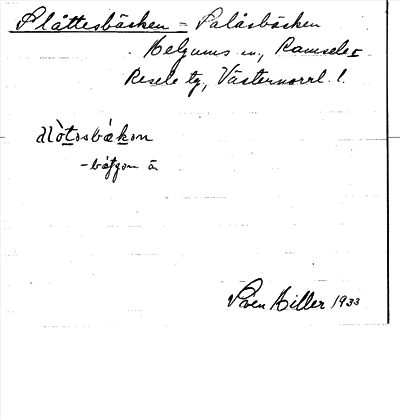 Slåttesbäcken = Salåsbäcken
Helgums sn, Ramsele o
Resele tg, Västernorrl. l.
slòtosbækon
-bæ̀kon ä
Sven Hiller 1933